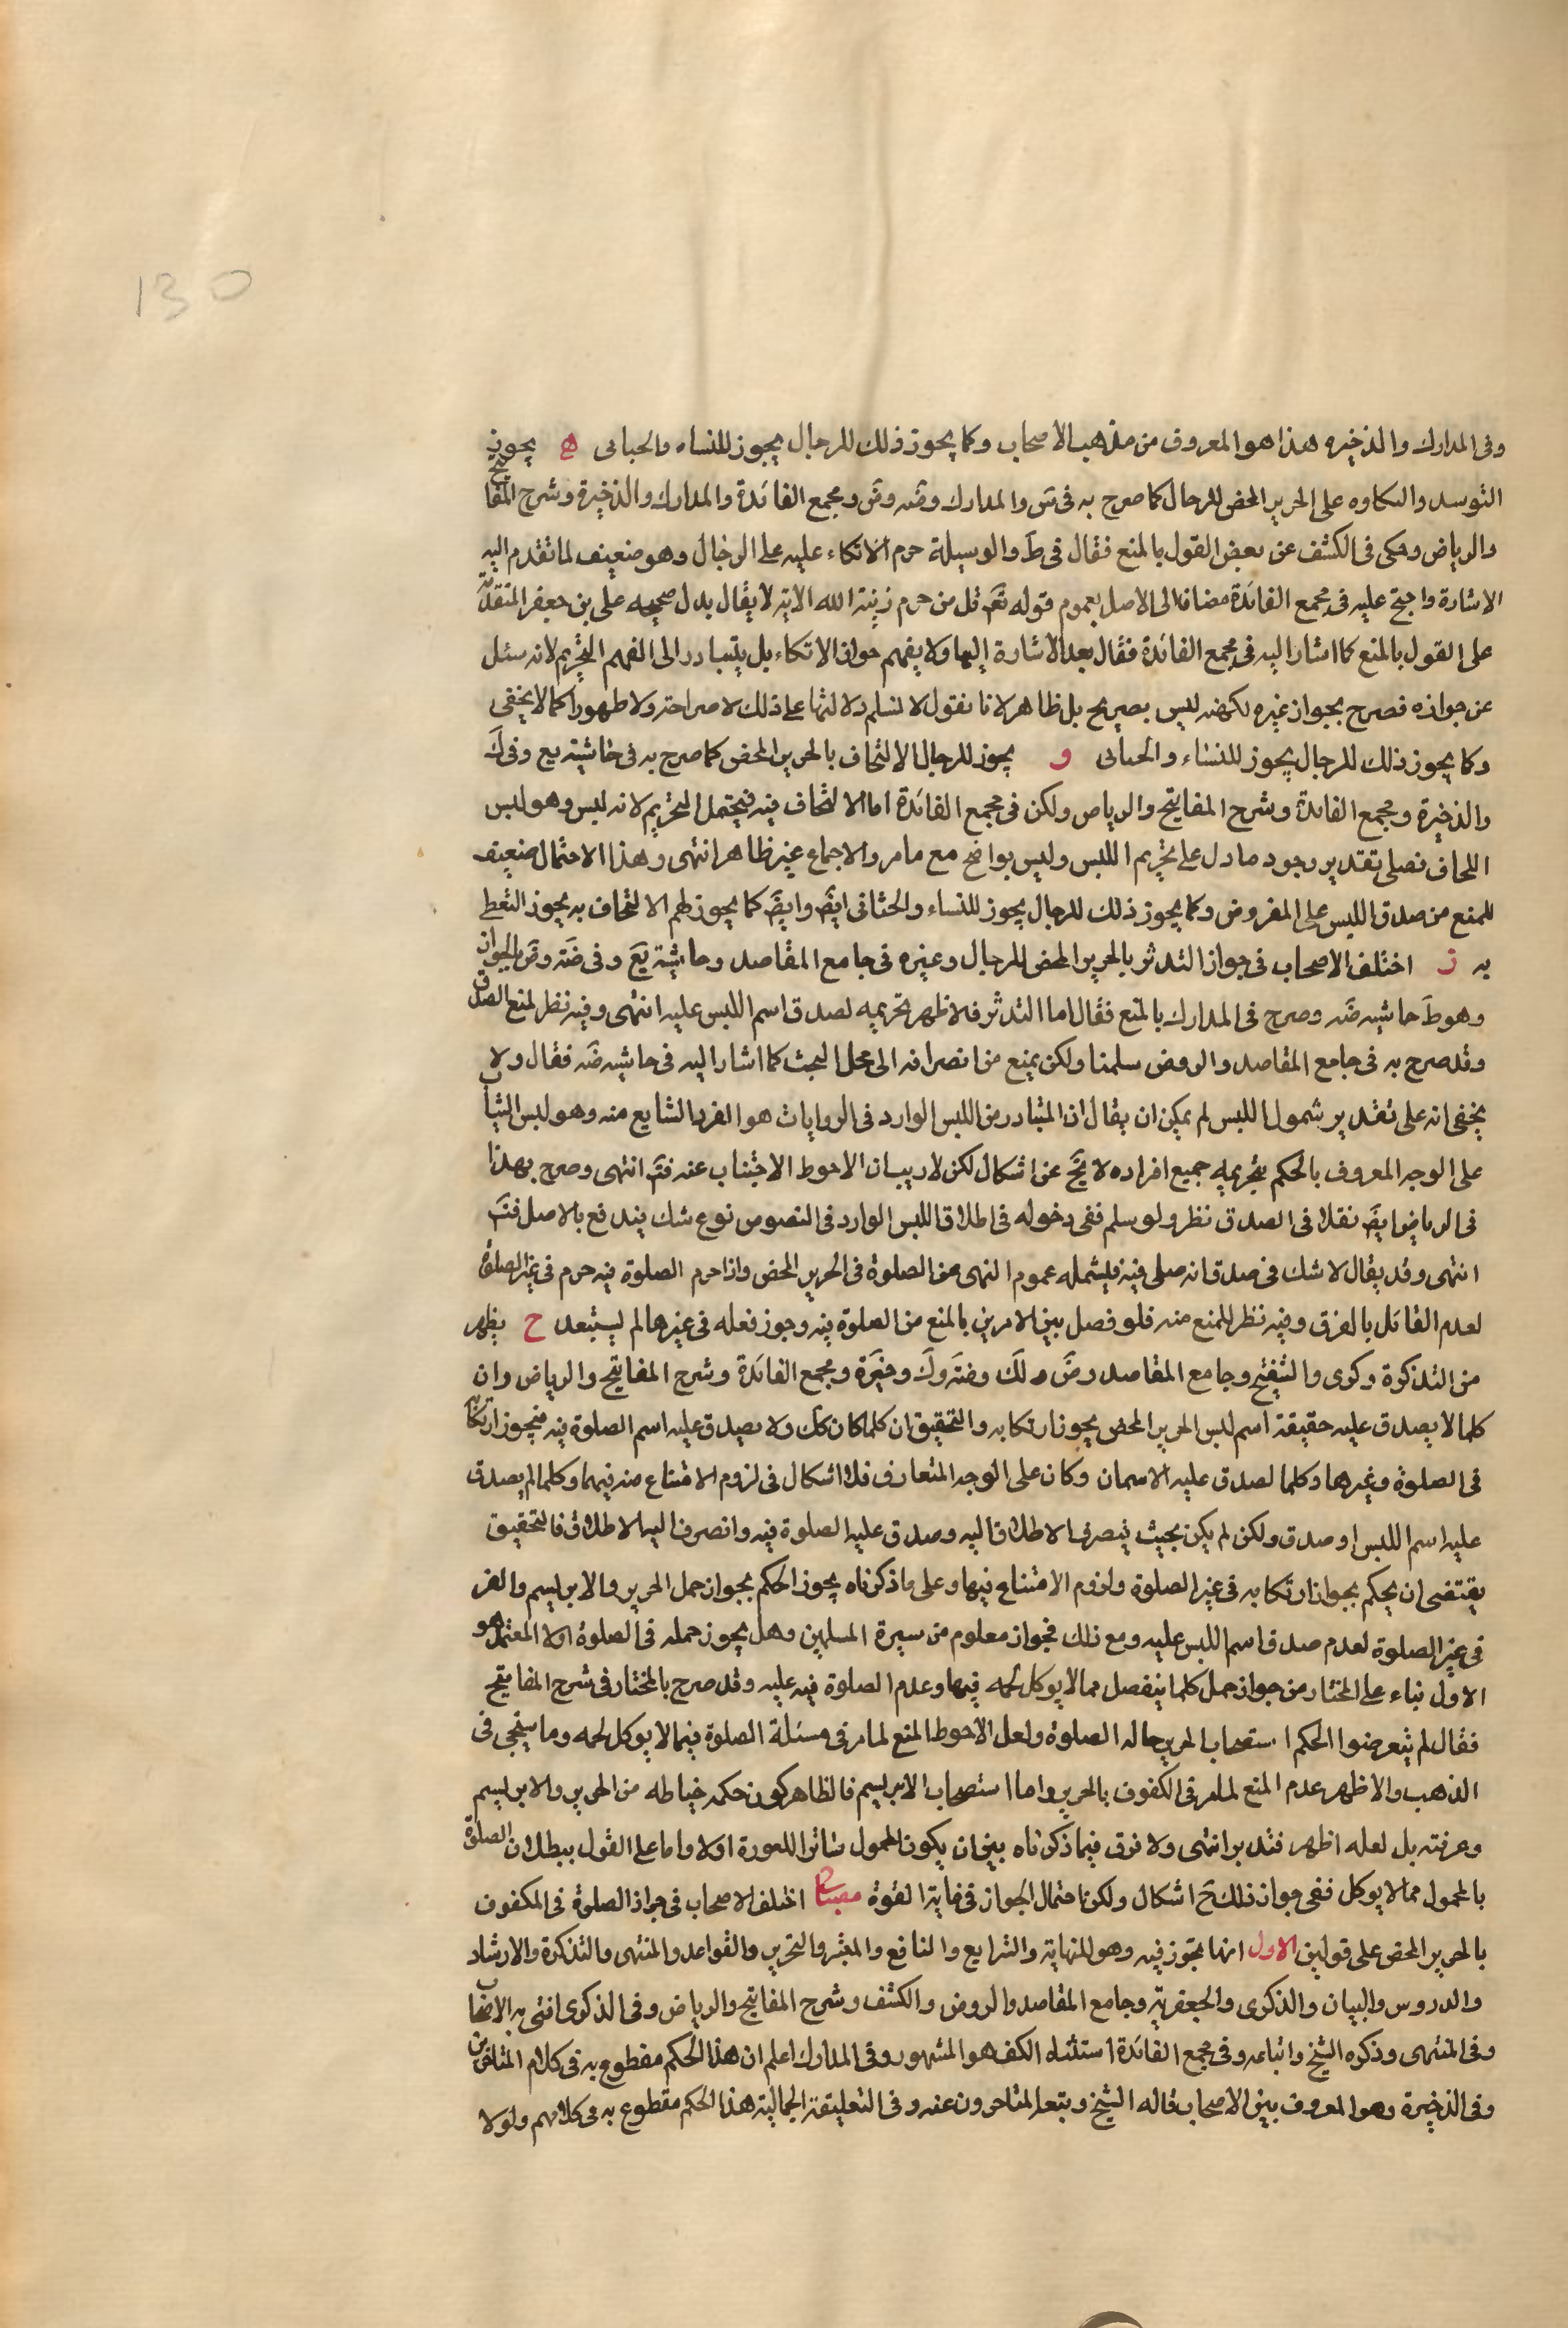 130
وفى المدارك والذخيره هذا هو المعروف من مذهب الاصحاب وكما يجوز ذلك للرجال يجوز للنساء والخناثى ه يجوز
التوسد والتكاوه على الحرير المحض للرجال كما صرح به فى س والمدارك وضه وض ومجمع الفائدة والمدارك والذخيرة وشرح المفاتيح
والرياض وحكى فى الكشف عن بعض القول بالمنع فقال فى ط والوسيلة حرم الاتكاء عليه على الرجال وهو ضعيف لما تقدم اليه
الاشارة واحتج عليه فى مجمع الفائدة مضافا الى الاصل بعموم قوله تع قل من حرم زينة الله الاية لا يقال يدل صحيحه على بن جعفر المتقدمة
على القول بالمنع كما اشار اليه فى مجمع الفائدة فقال بعد الاشارة اليها ولا يفهم جواز الاتكاء بل يتبادر الى الفهم التحريم لانه سئل
عن جوازه فصرح بجواز غيره لكنه ليس بصريح بل ظاهر لانا نقول لا نسلم دلالتها على ذلك لا صراحة ولا ظهورا كما لا يخفى
وكما يجوز ذلك للرجال يجوز للنساء والخناثى و يجوز للرجال الالتحاف بالحرير المحض كما صرح به فى حاشية يع وفى ك
والذخيرة ومجمع الفائدة وشرح المفاتيح والرياض ولكن فى مجمع الفائدة اما الالتحاف فيه فيحتمل التحريم لانه لبس وهو لبس
اللحاف فعلى تقدير وجود ما دل على تحريم اللبس وليس بواضح مع ما مر والاجماع غير ظاهر انتهى وهذا الاحتمال ضعيف
للمنع من صدق اللبس على المفروض وكما يجوز ذلك للرجال يجوز للنساء والخناثى ايض وايض كما يجوز لهم الالتحاف به يجوز التغطى
به ز اختلف الاصحاب فى جواز التدثر بالحرير المحض للرجال وعنه فى جامع المقاصد وحاشية يع وفى ضه وض بالجواز
وهو ط حاشيه ضه وصرح فى المدارك بالمنع فقال اما التدثر فالاظهر تحريمه لصدق اسم اللبس عليه انتهى وفيه نظر لمنع الصدق
وقد صرح به فى جامع المقاصد والروض سلمنا ولكن يمنع من انصرافه الى محل البحث كما اشار اليه فى حاشيه ضه فقال ولا
يخفى انه على تقدير شمول اللبس لم يمكن ان يقال ان المتبادر من اللبس الوارد فى الروايات هو الفرد الشايع منه وهو لبس الثياب
على الوجه المعروف بالحكم بتحريمه جميع افراده لا يخ عن اشكال لكن لا ريب ان الاحوط الاجتناب عنه فتم انتهى وصرح بهذا
فى الرياض ايض نقلا فى الصدق نظر ولو سلم ففى دخوله فى اطلاق اللبس الوارد فى النصوص نوع شك يندفع بالاصل فتم
انتهى وقد يقال لا شك فى صدق انه صلى فيه فيشمله عموم النهى عن الصلوة فى الحرير المحض واذا حرم الصلوة فيه حرم فى غير الصلوة
لعدم القائل بالفرق وفيه نظر للمنع منه فلو فصل بين الامرين بالمنع من الصلوة فيه وجوز فعله فى غيرها لم يستبعد ح يظهر
من التذكرة وكرى والتنقيح وجامع المقاصد وض ولك وضه وك وخيرة ومجمع الفائدة وشرح المفاتيح والرياض وان
كلما لا يصدق عليه حقيقة اسم لبس الحرير المحض يجوز ارتكابه والتحقيق ان كلما كان كك ولا يصدق عليه اسم الصلوة فيه فيجوز ارتكابه
فى الصلوة وغيرها وكلما لصدق عليه الاسمان وكان على الوجه المتعارف فلا اشكال فى لزوم الامتناع منه فيهما وكلما لم يصدق
عليه اسم اللبس او صدق ولكن لم يكن بحيث ينصرف الاطلاق اليه وصدق عليه الصلوة فيه وانصرف اليه الاطلاق فالتحقيق
يقتضى ان يحكم بجواز ارتكابه فى غير الصلوة ولزوم الامتناع فيها وعلى ما ذكرناه يجوز الحكم بجواز حمل الحرير والابريسم والقز
فى غير الصلوة لعدم صدق اسم اللبس عليه ومع ذلك فجواز معلوم من سيرة المسلمين وهل يجوز حمله فى الصلوة اولا المعتمد هو
الاول بناء على المختار من جواز حمل كلما ينفصل مما لا يوكل لحمه فيها وعدم الصلوة فيه عليه وقد صرح بالمختار فى شرح المفاتيح
فقال لم يتعرضوا الحكم استصحاب الحرير حاله الصلوة ولعل الاحوط المنع لما مر فى مسئلة الصلوة فيما لا يوكل لحمه وما سيجئ فى
الذهب والاظهر عدم المنع لما مر فى الكفوف بالحرير واما استصحاب الابريسم فالظاهر كون حكمه خياطه من الحرير والابريسم
وعرفته بل لعله اظهر فتدبر انتهى ولا فرق فيما ذكرناه بين ان يكون المحمول ساترا للعورة اولا واما على القول ببطلان الصلوة
بالمحمول مما لا يوكل ففى جواز ذلك ح اشكال ولكن احتمال الجواز فى غاية القوة مصباح اختلف الاصحاب فى جواز الصلوة فى المكفوف
بالحرير المحض على قولين الاول انها تجوز فيه وهو للنهاية والشرايع والنافع والمعتبر والتحرير والقواعد والمنتهى والتذكرة والارشاد
والدروس والبيان والذكرى والجعفرية وجامع المقاصد والروض والكشف وشرح المفاتيح والرياض وفى الذكرى افتى به الاصحاب
وفى المنتهى وذكره الشيخ واتباعه وفى مجمع الفائدة استثناء الكف هو المشهور وفى المدارك اعلم ان هذا الحكم مقطوع به فى كلام المتاخرين
وفى الذخيرة وهو المعروف بين الاصحاب قاله الشيخ وتبعه المتاخرون عنه وفى التعليقة الجمالية هذا الحكم مقطوع به فى كلامهم ولولا